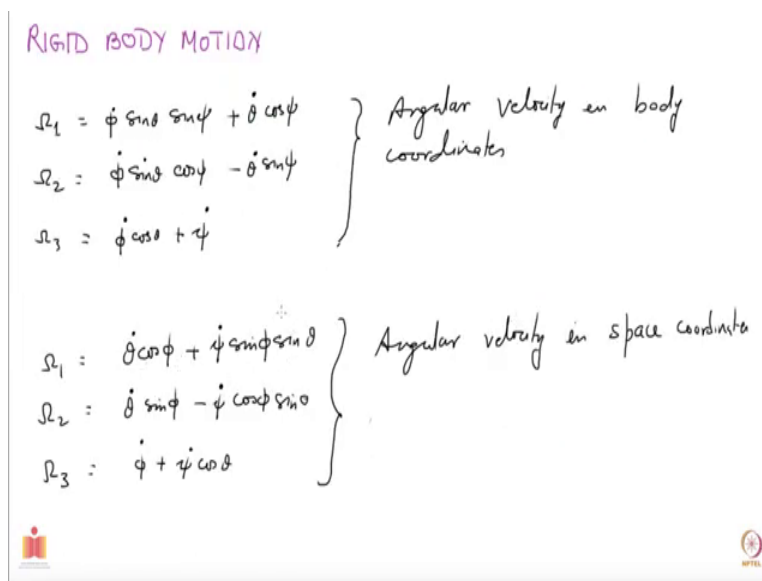 RIGID BODY MOTION
Ω1 = φ̇ sinθ sinψ + θ̇ cosψ
Ω2 = φ̇ sinθ cosψ - θ̇ sinψ
Ω3 = φ̇ cosθ + ψ̇
Angular velocity in body
coordinates
Ω1 = θ̇ cosφ + ψ̇ sinφ sinθ
Ω2 = θ̇ sinφ - ψ̇ cosφ sinθ
Ω3 = φ̇ + ψ̇ cosθ
Angular velocity in space coordinates
NPTEL